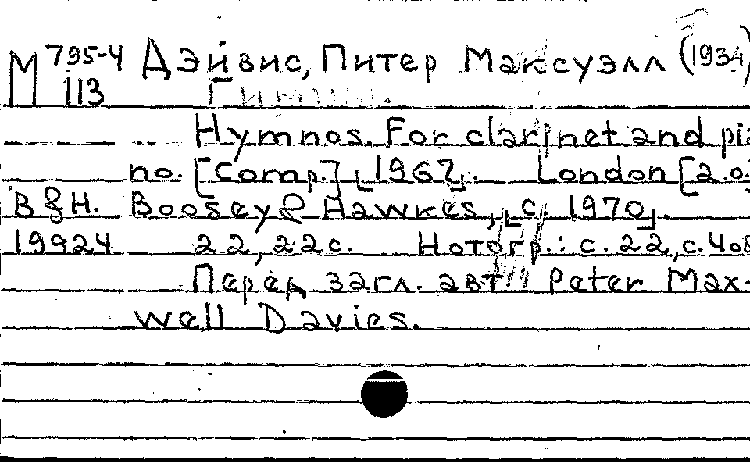 М 795-4 Дэйвис, Питер Максуэлл (1934)
113 Гимны.
Hymnos. For clarinet and pia
no. [Comp.] 1967. London [a.o.
B & H. Boosey & Hawkes, c. 1970.
19924 22, 22 с. Нотогр.: с. 22, с. 4 об
Перед загл. авт. Peter Max-
well Davies.